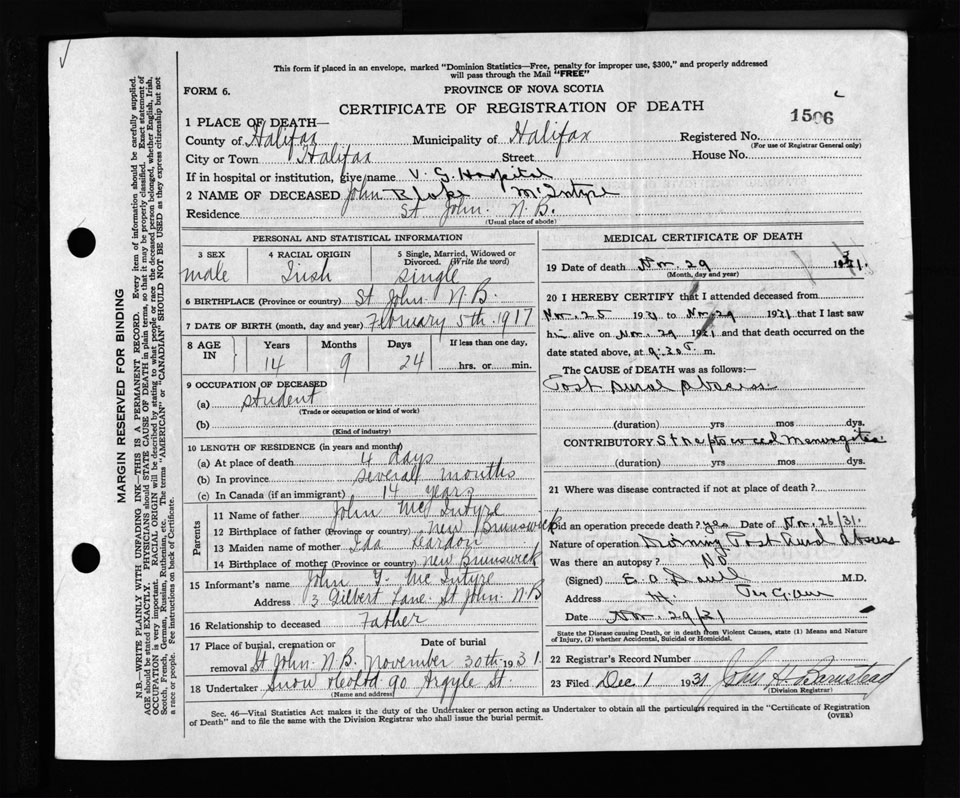 This form if placed in an envelope, marked "Dominion Statistics—Free, penalty for improper use, $300," and properly addressed
will pass through the Mail "FREE"
FORM 6.
PROVINCE OF NOVA SCOTIA
CERTIFICATE OF REGISTRATION OF DEATH
1506
1 PLACE OF DEATH—
County of Halifax Municipality of Halifax Registered No.
(For use of Registrar General only)
City or Town Halifax Street House No.
If in hospital or institution, give name V. G. Hospital
2 NAME OF DECEASED John Blake McIntyre
Residence St John N.B.
(Usual place of abode)
PERSONAL AND STATISTICAL INFORMATION
3 SEX 4 RACIAL ORIGIN 5 Single, Married, Widowed or
Divorced. (Write the word)
male Irish single
6 BIRTHPLACE (Province or country) St John N.B.
7 DATE OF BIRTH (month, day and year) February 5th 1917
8 AGE IN Years Months Days If less than one day,
14 9 24 hrs. or min.
9 OCCUPATION OF DECEASED
(a) student
(Trade or occupation or kind of work)
(b)
(Kind of industry)
10 LENGTH OF RESIDENCE (in years and months)
(a) At place of death 4 days
(b) In province several months
(c) In Canada (if an immigrant) 14 years
Parents
11 Name of father John McIntyre
12 Birthplace of father (Province or country) New Brunswick
13 Maiden name of mother Ida
14 Birthplace of mother (Province or country) New Brunswick
15 Informant's name John F. McIntyre
Address 3 Gilbert Lane St John N.B
16 Relationship to deceased Father
17 Place of burial, cremation or Date of burial
removal St John N.B. November 30th 1931.
18 Undertaker Snow & Co Ltd 90 Argyle St.
(Name and address)
MEDICAL CERTIFICATE OF DEATH
19 Date of death Nov. 29 1931.
(Month, day and year)
20 I HEREBY CERTIFY that I attended deceased from
Nov. 25 1931 to Nov 29 1931 that I last saw
him alive on Nov. 29 1931 and that death occurred on the
date stated above, at 9.30 P. m.
The CAUSE of DEATH was as follows:—
Post Aural Abscess
(duration) yrs mos dys.
CONTRIBUTORY Streptococcal Meningitis
(duration) yrs. mos. dys.
21 Where was disease contracted if not at place of death?
Did an operation precede death? yes Date of Nov. 26/31.
Nature of operation Draining Post Aural Abscess
Was there an autopsy? No
(Signed) M.D.
Address
Date Nov. 29/31
State the Disease causing Death, or in death from Violent Causes, state (1) Means and Nature
of Injury, (2) whether Accidental, Suicidal or Homicidal.
22 Registrar's Record Number
23 Filed Dec 1 1931 John H. Barnstead
(Division Registrar)
Sec. 46—Vital Statistics Act makes it the duty of the Undertaker or person acting as Undertaker to obtain all the particulars required in the "Certificate of Registration
of Death" and to file the same with the Division Registrar who shall issue the burial permit.
(OVER)
MARGIN RESERVED FOR BINDING
N.B.—WRITE PLAINLY WITH UNFADING INK—THIS IS A PERMANENT RECORD. Every item of information should be carefully supplied.
AGE should be stated EXACTLY. PHYSICIANS should STATE CAUSE OF DEATH in plain terms, so that it may be properly classified. Exact statement of
OCCUPATION is very important. RACIAL ORIGIN will be described by stating to what people or race the deceased person belonged, whether English, Irish,
Scotch, French, German, Russian, Ruthenian, etc. The terms "AMERICAN" or "CANADIAN" SHOULD NOT BE USED as they express citizenship but not
a race or people. Fee instructions on back of Certificate.